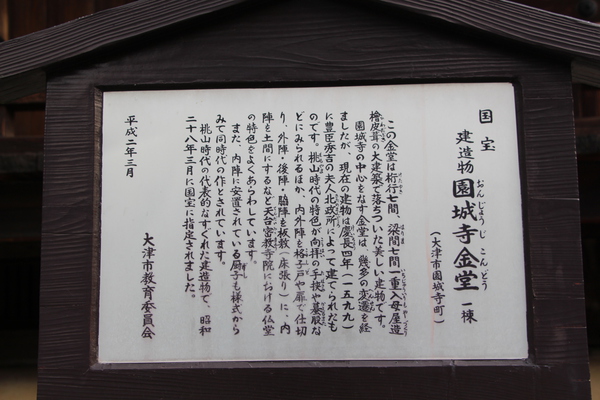 国宝
建造物 園城寺金堂 一棟
おんじょうじ こんどう
(大津市園城寺町)
この金堂は桁行七間、梁間七間一重入母屋造
檜皮葺の大建築で落ちついた美しい建物です。
園城寺の中心をなす金堂は、幾多の変遷を経
ましたが、現在の建物は慶長四年(一五九九)
に豊臣秀吉の夫人北政所によって建てられたも
のです。桃山時代の特色が向拝の手挟や蟇股な
どにみられるほか、内外陣を格子戸や扉で仕切
り、外陣・後陣・脇陣を板敷(床張り)に、内
陣を土間にするなど天台密教寺院における仏堂
の特色をよくあらわしています。
また、内陣に安置されている厨子も様式から
みて同時代の作とされています。
桃山時代の代表的なすぐれた建造物で、昭和
二十八年三月に国宝に指定されました。
平成二年三月
大津市教育委員会